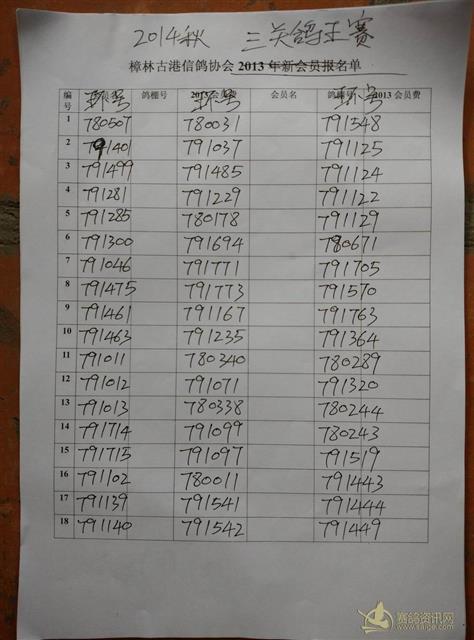 2014秋 三关鸽王赛
樟林古港信鸽协会 2013年新会员报名单
编号 环号 鸽棚号 2013会员费 环号 会员名 鸽棚号 环号 2013会员费
1 780507 780031 791548
2 791401 791037 791125
3 791499 791485 791124
4 791281 791229 791122
5 791285 780178 791129
6 791300 791694 780671
7 791046 791771 791705
8 791475 791773 791570
9 791461 791167 791763
10 791463 791235 791364
11 791011 780340 780289
12 791012 791071 791320
13 791013 780338 780244
14 791714 791099 780243
15 791715 791097 791519
16 791102 780011 791443
17 791139 791541 791444
18 791140 791542 791449
赛鸽资讯网
www.saige.com